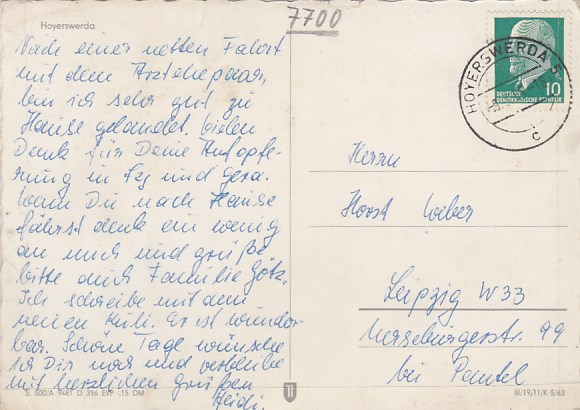 7700
Hoyerswerda
Nach einer netten Fahrt
mit dem Arztehepaar,
bin ich sehr gut zu
Hause gelandet. Vielen
Dank für Deine Aufopfe-
rung in Lpg und Gera.
Wenn Du nach Hause
fährst denk ein wenig
an mich und grüße
bitte auch Familie Götz.
Ich schreibe mit dem
neuen Kuli. Er ist wunder-
bar. Schöne Tage wünsche
ich Dir noch und verbleibe
mit herzlichen Grüßen
Heidi.
HOYERSWERDA 5
c
10
DEUTSCHE
DEMOKRATISCHE REPUBLIK
Herrn
Horst Weber
Leipzig W33
Merseburgerstr. 99
bei Pentel
S. 500/A 9481 D 396 EVP -,15 DM
III/19/11/K 5/63